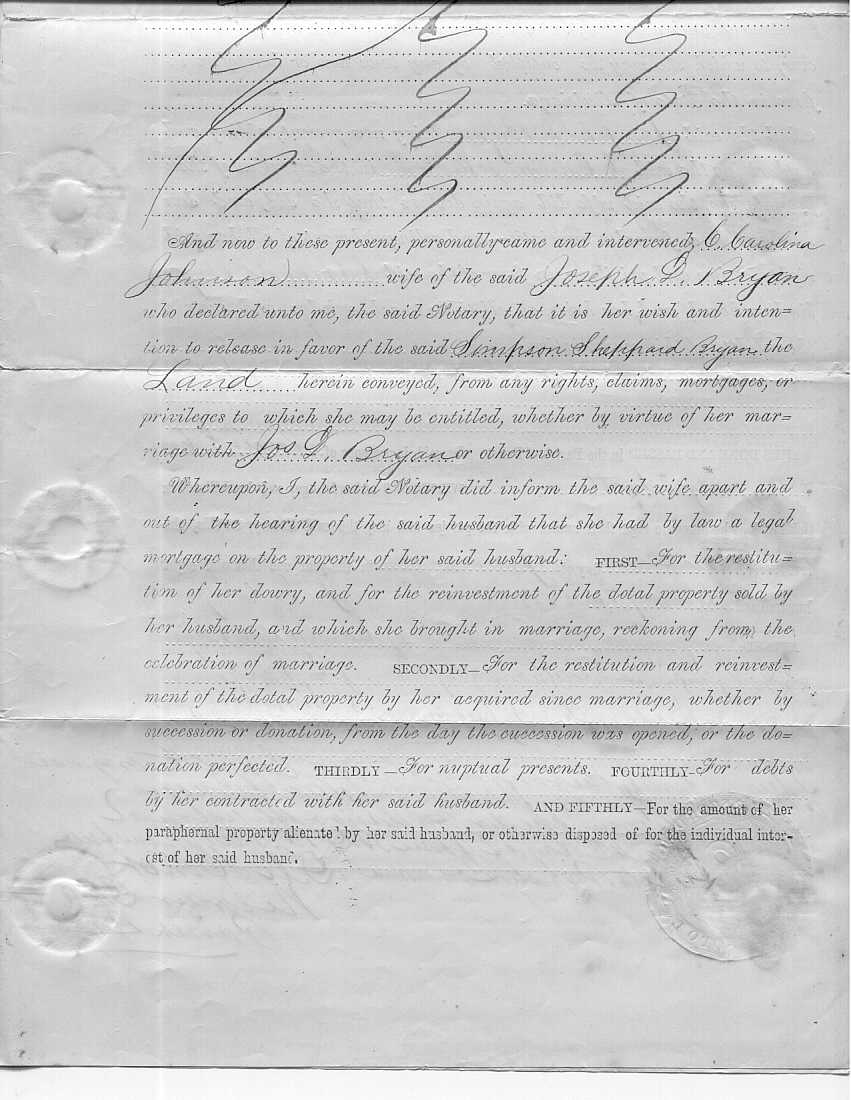 And now to these present, personally came and intervened, C. Carolina
Johnson wife of the said Joseph D. Bryan
who declared unto me, the said Notary, that it is her wish and inten=
tion to release in favor of the said Simpson Sheppard Bryan the
Land herein conveyed, from any rights, claims, mortgages, or
privileges to which she may be entitled, whether by virtue of her mar=
riage with Jos D. Bryan or otherwise.
Whereupon, I, the said Notary did inform the said wife apart and
out of the hearing of the said husband that she had by law a legal
mortgage on the property of her said husband: FIRST—For the restitu=
tion of her dowry, and for the reinvestment of the dotal property sold by
her husband, and which she brought in marriage, reckoning from the
celebration of marriage. SECONDLY—For the restitution and reinvest=
ment of the dotal property by her acquired since marriage, whether by
succession or donation, from the day the cuccession was opened, or the do=
nation perfected. THIRDLY—For nuptual presents. FOURTHLY-For debts
by her contracted with her said husband. AND FIFTHLY—For the amount of her
paraphernal property alienated by her said husband, or otherwise disposed of for the individual inter-
est of her said husband.